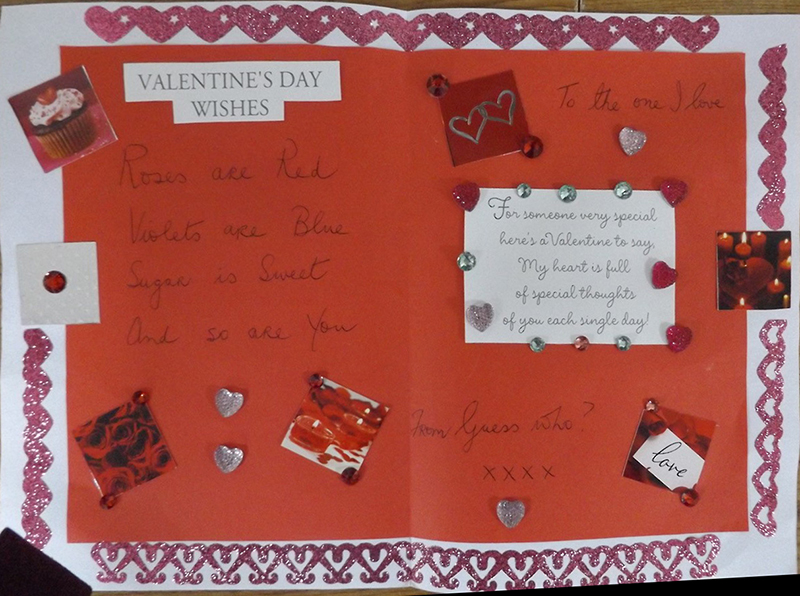 VALENTINE'S DAY
WISHES
Roses are Red
Violets are Blue
Sugar is Sweet
And so are You
To the one I love
For someone very special
here's a Valentine to say,
My heart is full
of special thoughts
of you each single day!
From Guess who?
XXXX
love